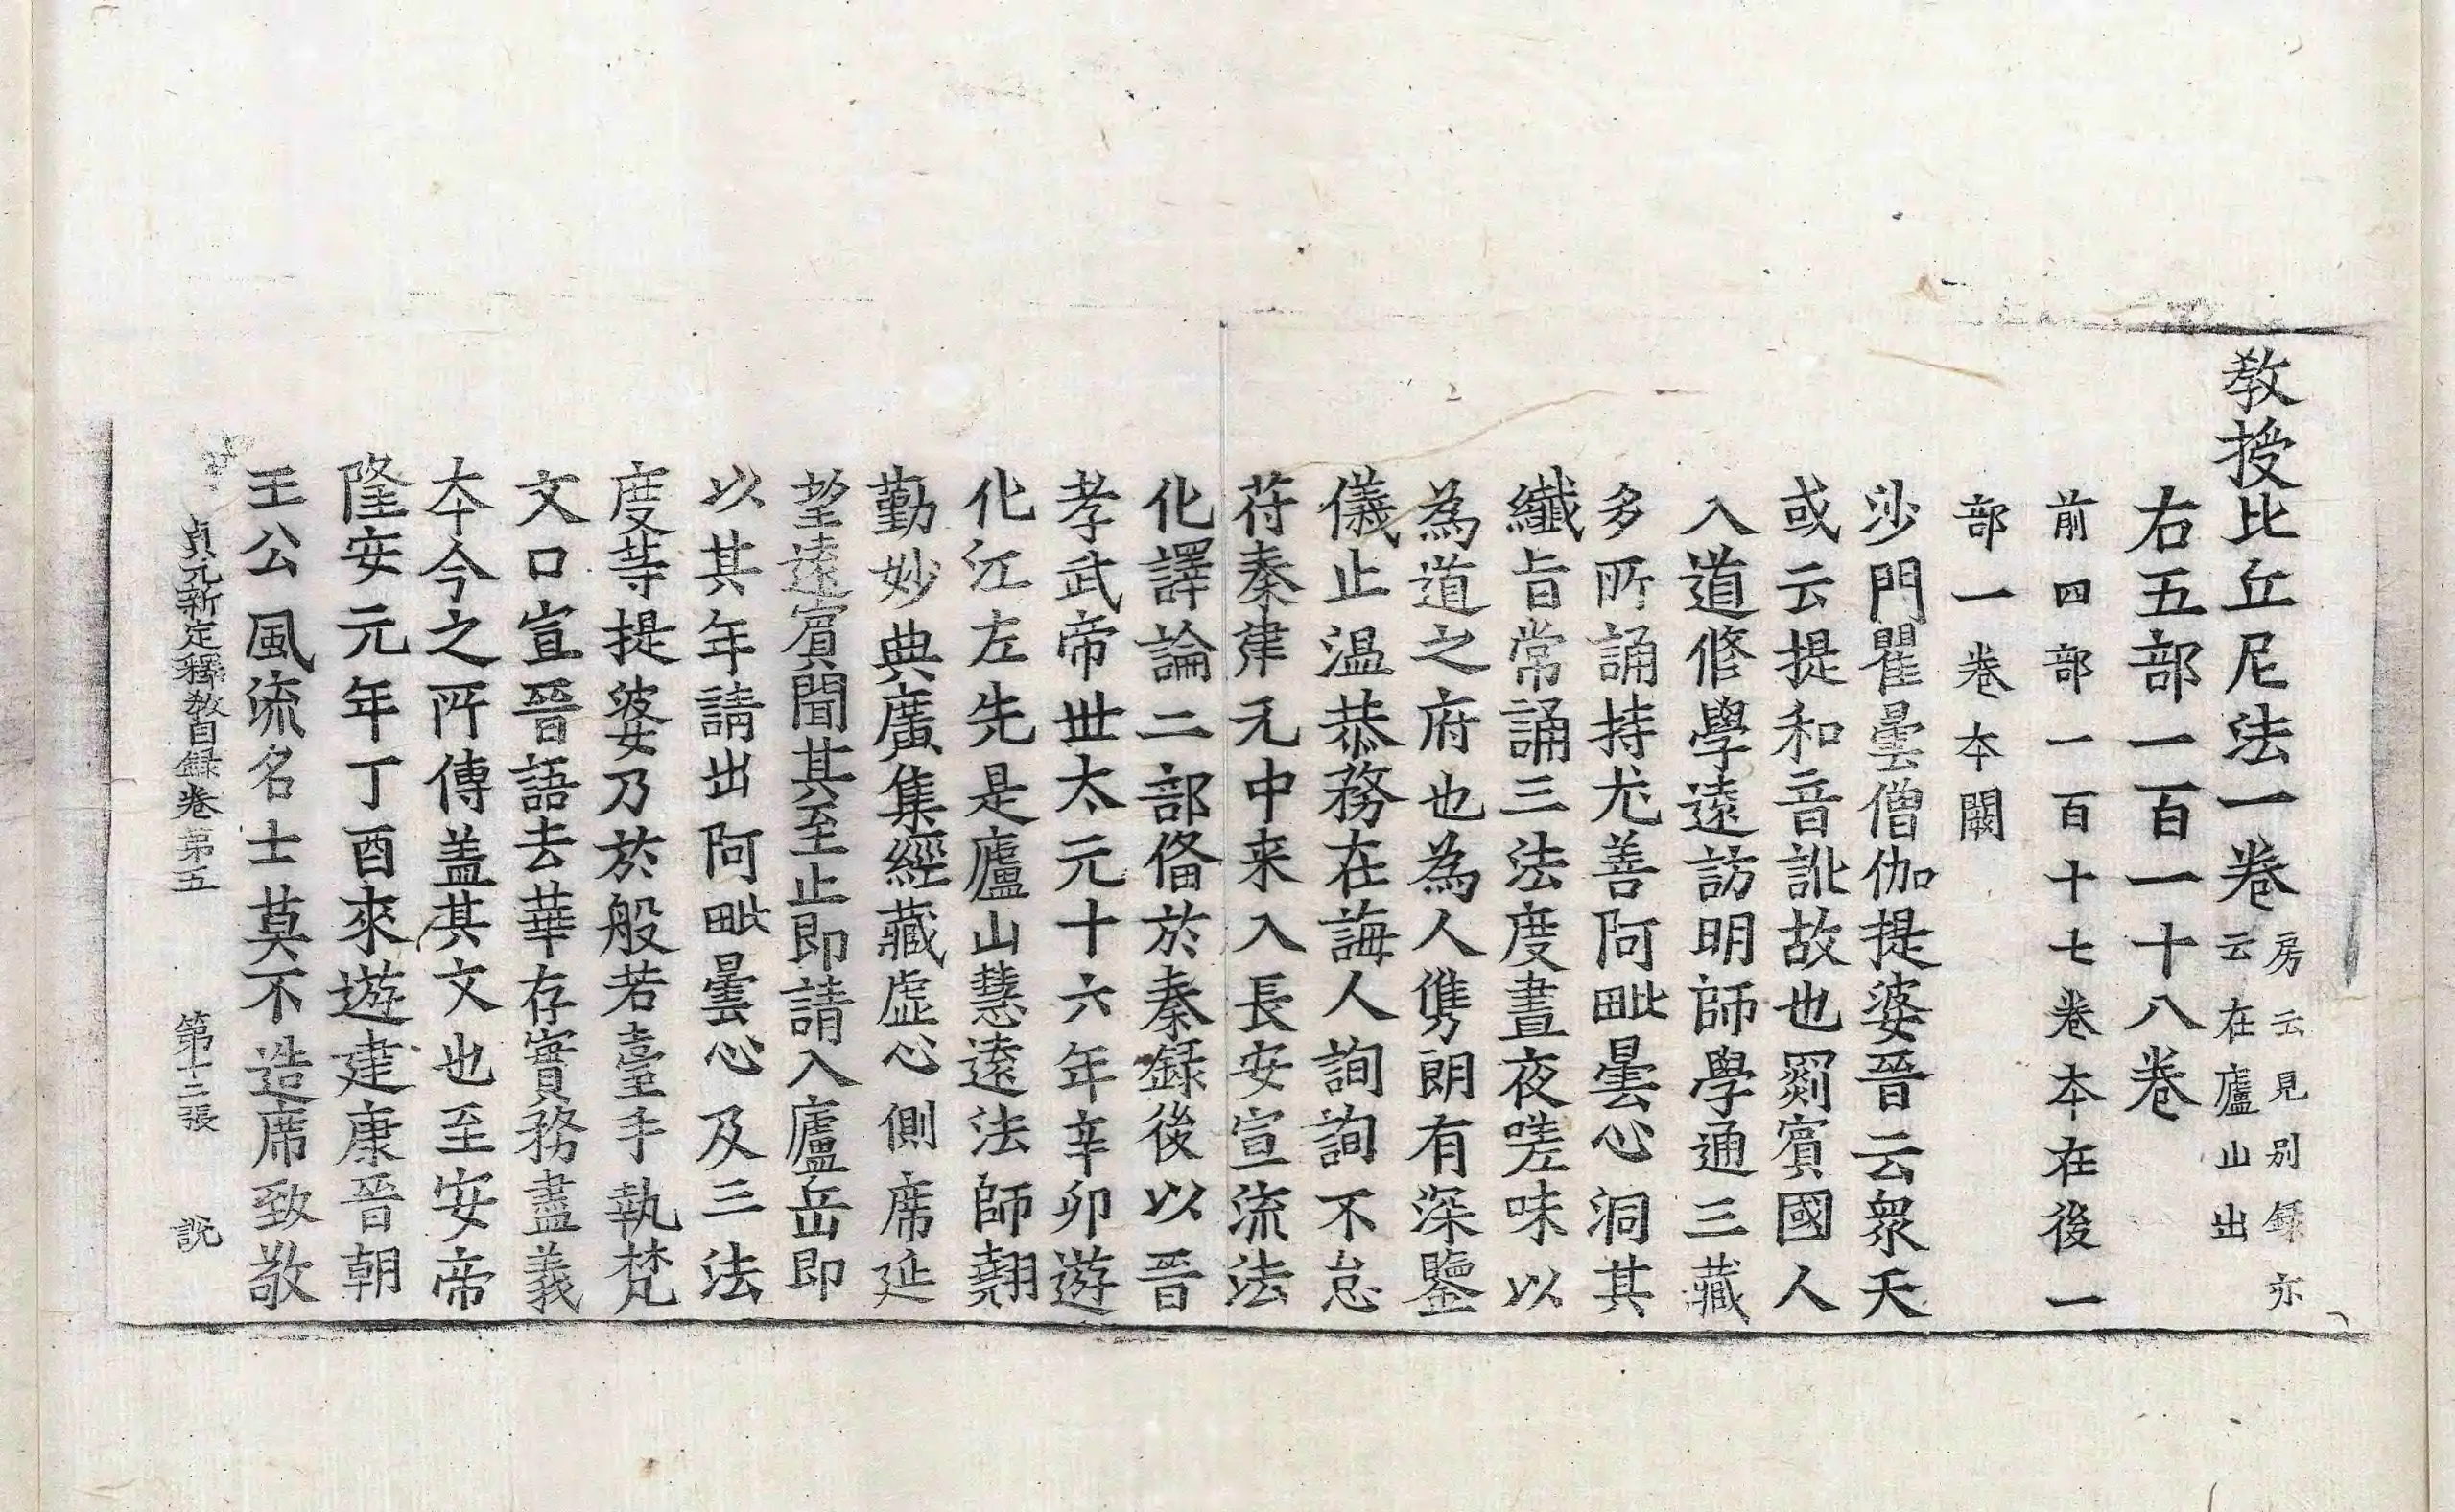 教授比丘尼法一卷房云見別錄亦云在廬山出
右五部一百一十八卷
前四部一百十七卷本在後一
部一卷本闕
沙門瞿曇僧伽提婆晉云衆天
或云提和音訛故也罽賓國人
入道修學遠訪明師學通三藏
多所誦持尤善阿毗曇心洞其
纖旨常誦三法度晝夜嗟味以
為道之府也為人儁朗有深鑒
儀止温恭務在誨人詢詢不怠
苻秦建元中来入長安宣流法
化譯論二部俻於秦錄後以晉
孝武帝世太元十六年辛卯遊
化江左先是廬山慧遠法師翹
勤妙典廣集經藏虛心側席延
望遠賓聞其至止即請入廬岳即
以其年請出阿毗曇心及三法
度等提婆乃於般若臺手執梵
文口宣晉語去華存實務盡義
本今之所傳盖其文也至安帝
隆安元年丁酉來遊建康晉朝
王公風流名士莫不造席致敬
貞元新定釋教目錄卷第五 第十二張 說